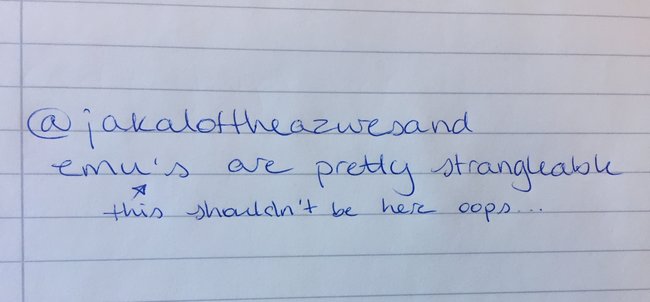 @jakaloftheazuresand
emu's are pretty strangleable
this shouldn't be here oops...